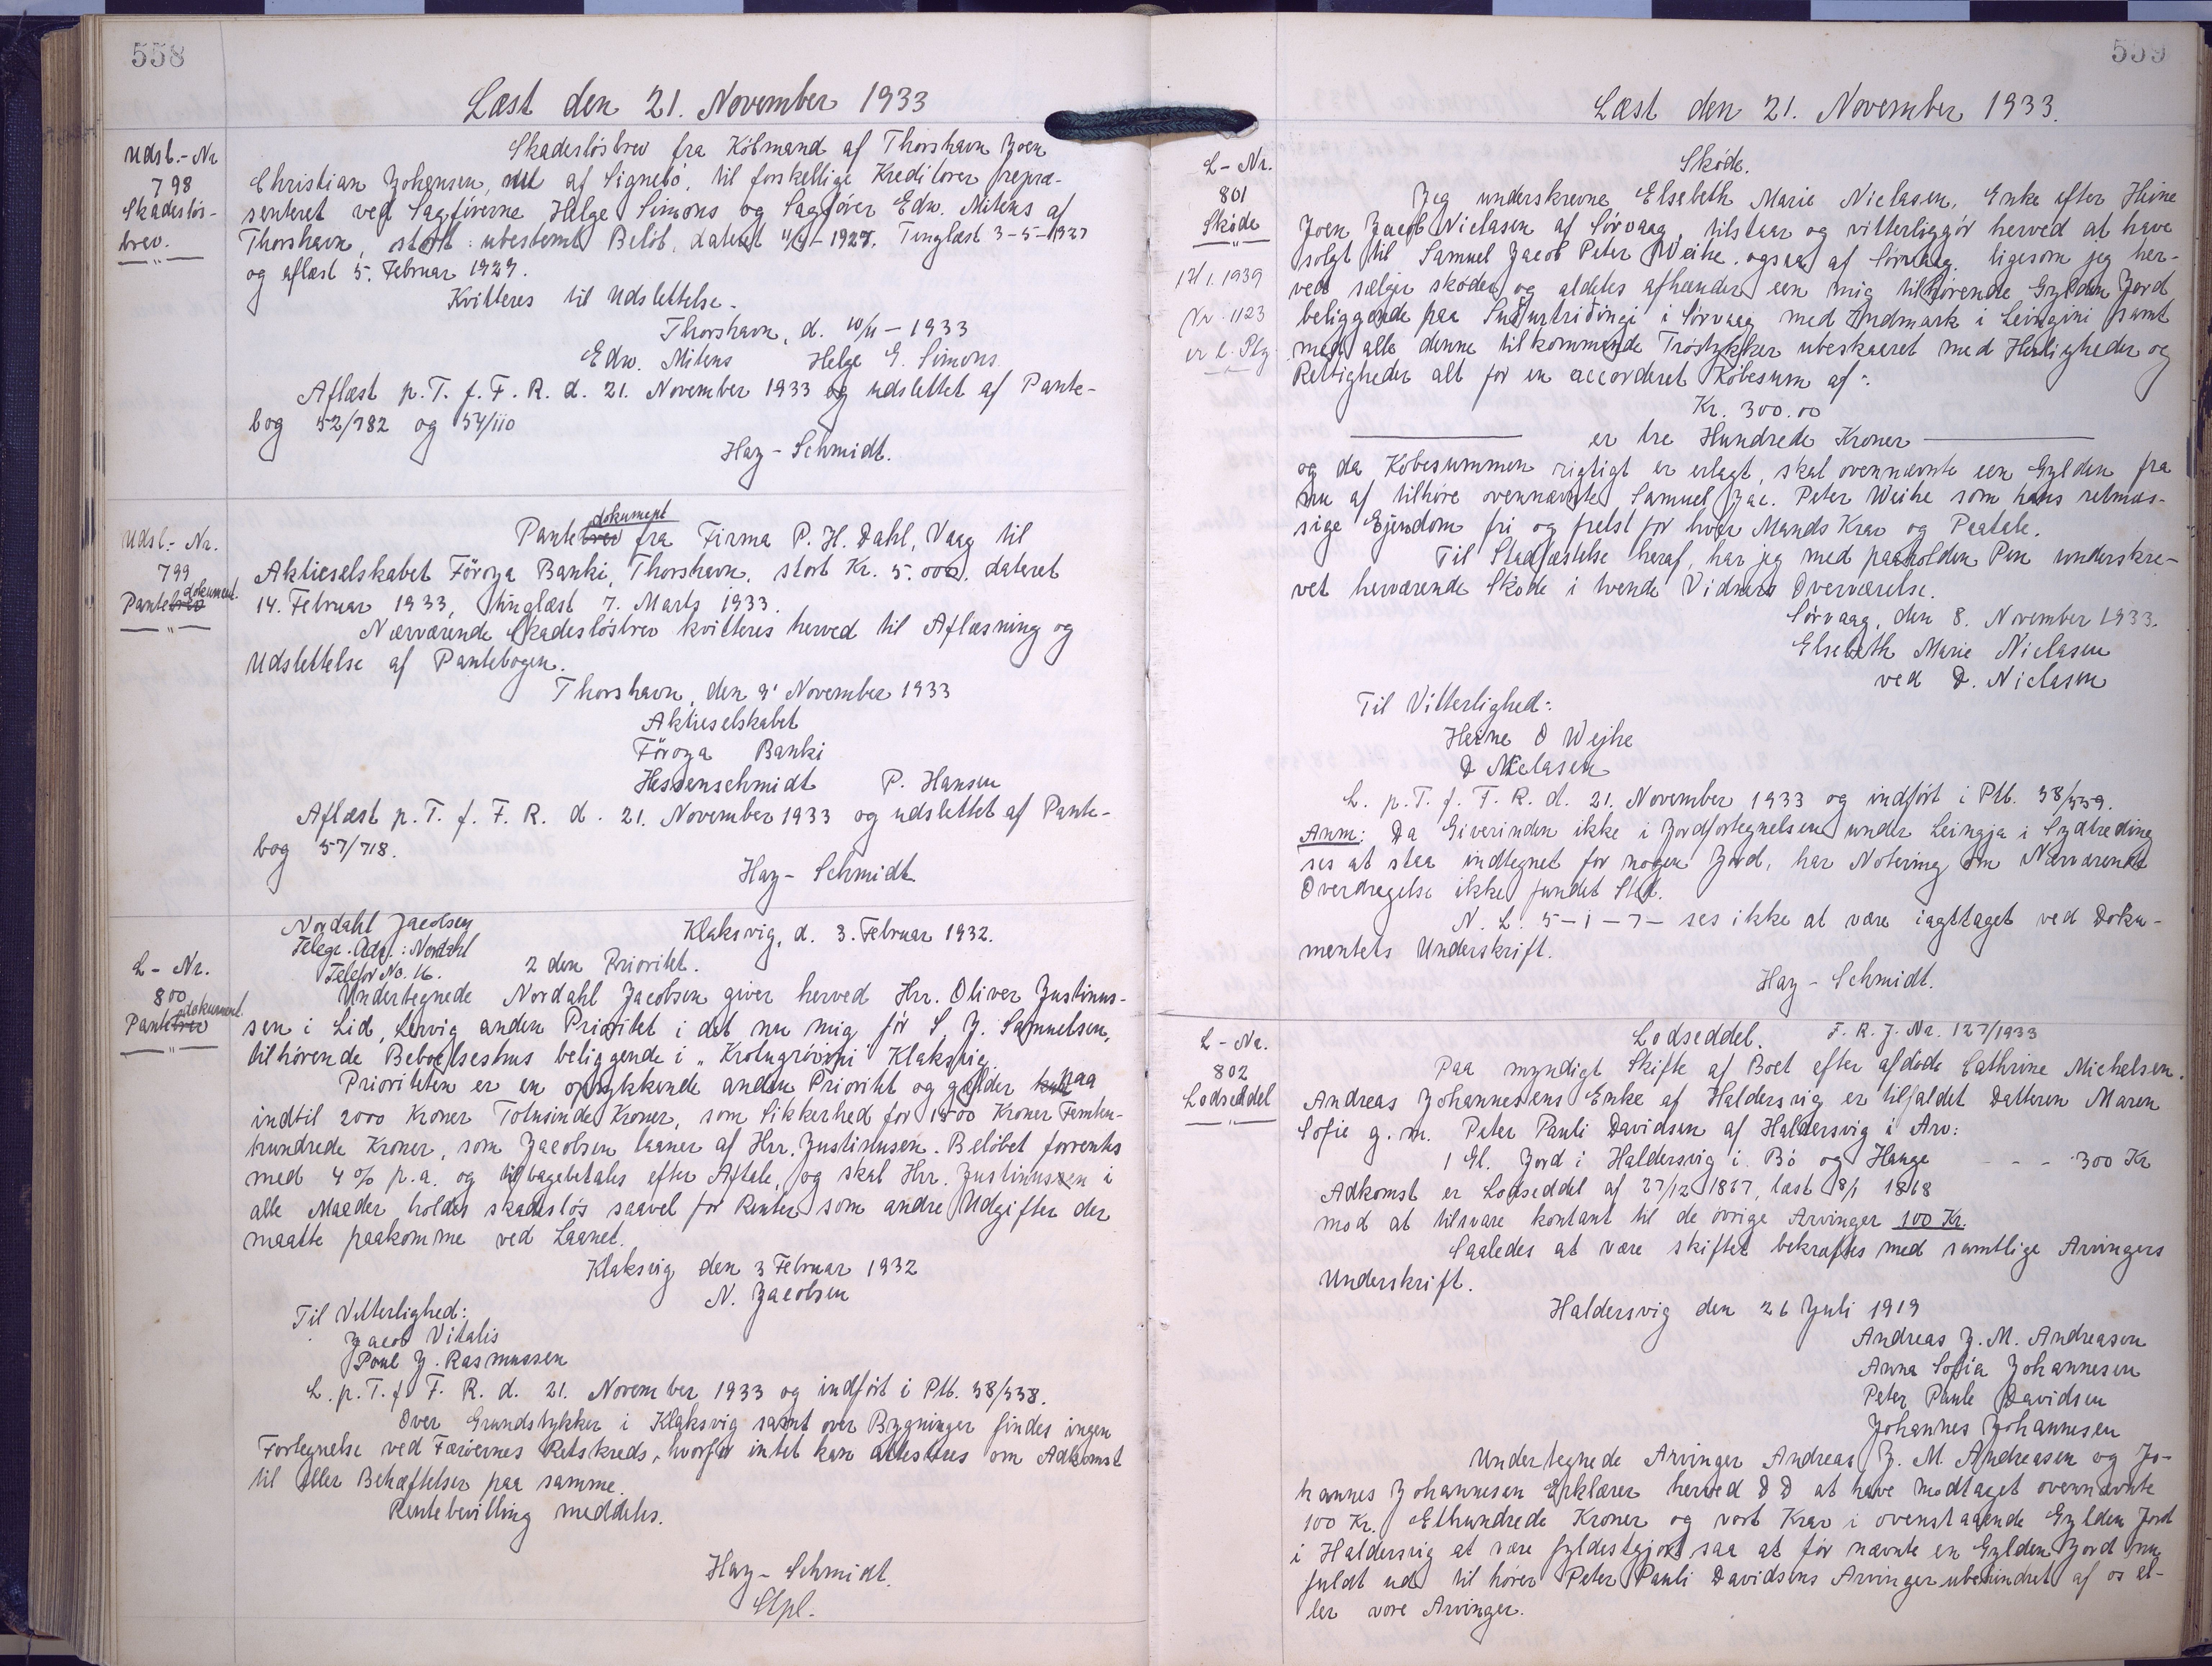 558
Læst den 21. November 1933
Udsl.-Nr
798
Skadesløs-
brev.
Skadesløsbrev fra Købmand af Thorshavn Joen
Christian Johansen, af Signebø, til forskellige Kreditorer repræ-
senteret ved Sagførerne Helge Simons og Sagfører Edw. Mitens af
Thorshavn, stort: ubestemt Beløb, dateret 1927. Tinglæst 3-5-1927
og aflæst 5. Februar 1929.
Kvitteres til Udslettelse.
Thorshavn, d. 10/11-1933
Edw. Mitens Helge G. Simons.
Aflæst p. T. f. F. R. d. 21. November 1933 og udslettet af Pante-
bog 52/782 og 54/110
Hay-Schmidt.
Udsl.-Nr.
799
Pantebrev dokument.
Pantebrev dokument fra Firma P. H. Dahl, Vaag til
Aktieselskabet Föroya Banki, Thorshavn, stort Kr. 5.000. dateret
14. Februar 1933, tinglæst 7. Marts 1933.
Nærværende Skadesløsbrev kvitteres herved til Aflæsning og
Udslettelse af Pantebogen.
Thorshavn, den 9' November 1933
Aktieselskabet
Föroya Banki
Hessenschmidt P. Hansen
Aflæst p. T. f. F. R. d. 21. November 1933 og udslettet af Pante-
bog 57/718.
Hay-Schmidt
L-Nr.
800
Pantebrev dokument.
Nordahl Jacobsen
Telegr. Adr.: Nordahl
Telefon No. 16.
Klaksvig, d. 3. Februar 1932.
2 den Prioritet.
Undertegnede Nordahl Jacobsen giver herved Hrr. Oliver Justinus-
sen i Lid, Lervig anden Prioritet i det nu mig før S. J. Samuelsen,
tilhørende Beboelseshus beliggende i „Krotugrövini" Klaksvig.
Prioriteten er en oprykkende anden Prioritet og gælder paa
indtil 2000 Kroner Totusinde Kroner, som Sikkerhed for 1500 Kroner Femten-
hundrede Kroner, som Jacobsen laaner af Hrr. Justinusen. Beløbet forrentes
med 4 % p.a. og tilbagebetales efter Aftale, og skal Hrr. Justinussen i
alle Maader holdes skadesløs saavel for Renter som andre Udgifter der
maatte paakomme ved Laanet.
Klaksvig den 3 Februar 1932
N. Jacobsen
Til Vitterlighed:
Jacob Vitalis
Poul J. Rasmussen
L. p. T. f. F. R. d. 21. November 1933 og indført i Ptb. 58/558.
Over Grundstykker i Klaksvig samt over Bygninger findes ingen
Fortegnelse ved Færøernes Retskreds, hvorfor intet kan attesteres om Adkomst
til eller Behæftelser paa samme.
Rentebevilling meddeles.
Hay-Schmidt.
Stpl.
559
Læst den 21. November 1933.
L-Nr.
801
Skøde
1939
Nr. 1123
Skøde.
Jeg underskrevne Elsebeth Marie Niclasen, Enke efter Heine
Joen Jacob Niclasen af Sørvaag, tilstaar og vitterliggør herved at have
solgt til Samuel Jacob Peter Weihe, ogsaa af Sørvaag, ligesom jeg her-
ved sælger skøder og aldeles afhænder een mig tilhørende Gylden Jord
beliggende paa Suðurtriðingi i Sørvaag med Indmark i Leingini samt
med alle denne tilkommende Trøstykker ubeskaaret med Herligheder og
Rettigheder alt for en accorderet Købesum af:
Kr. 300.00
er tre Hundrede Kroner
og da Købesummen rigtigt er erlagt, skal ovennævnte een Gylden fra
nu af tilhøre ovennævnte Samuel Jac. Peter Weihe som hans retmæs-
sige Ejendom fri og frelst for hver Mands Krav og Paatale.
Til Stadfæstelse heraf, har jeg med paaholden Pen underskre-
vet herværende Skøde i tvende Vidners Overværelse.
Sørvaag, den 8. November 1933.
Elsebeth Marie Niclasen
ved D. Niclasen
Til Vitterlighed:
Heine O Wejhe
D Niclasen
L. p. T. f. F. R. d. 21. November 1933 og indført i Ptb. 58/559.
Anm: Da Giverinden ikke i Jordfortegnelsen under Leingja i Sydtreding
ses at staa indtegnet for nogen Jord, har Notering om Nærværende
Overdragelse ikke fundet Sted.
N. L. 5-1-7- ses ikke at være iagttaget ved Doku-
mentets Underskrift.
Hay-Schmidt.
L-Nr.
802
Lodseddel
Lodseddel. F. R. J. Nr. 127/1933
Paa myndigt Skifte af Boet efter afdøde Cathrine Michelsen.
Andreas Johannesens Enke af Haldersvig er tilfaldet Datteren Maren
Sofie g. m. Peter Pauli Davidsen af Haldersvig i Arv:
1 Gl. Jord i Haldersvig i Bø og Hauge - - - 300 Kr
Adkomst er Lodseddel af 27/12 1867, læst 8/1 1868
mod at tilsvare kontant til de øvrige Arvinger 100 Kr.
Saaledes at være skiftet bekræftes med samtlige Arvingers
Underskrift.
Haldersvig den 26 Juli 1919
Andreas J. M. Andreasen
Anna Sofia Johannesen
Peter Paule Davidsen
Johannes Johannesen
Undertegnede Arvinger Andreas J. M. Andreasen og Jo-
hannes Johannesen Erklærer herved D D at have modtaget ovennævnte
100 Kr. Ethundrede Kroner og vort Krav i ovenstaaende Gylden Jord
i Haldersvig at være fyldestgjort saa at før nævnte en Gylden Jord nu
fuldt ud til hører Peter Pauli Davidsens Arvinger ubehindret af os el-
ler vore Arvinger.